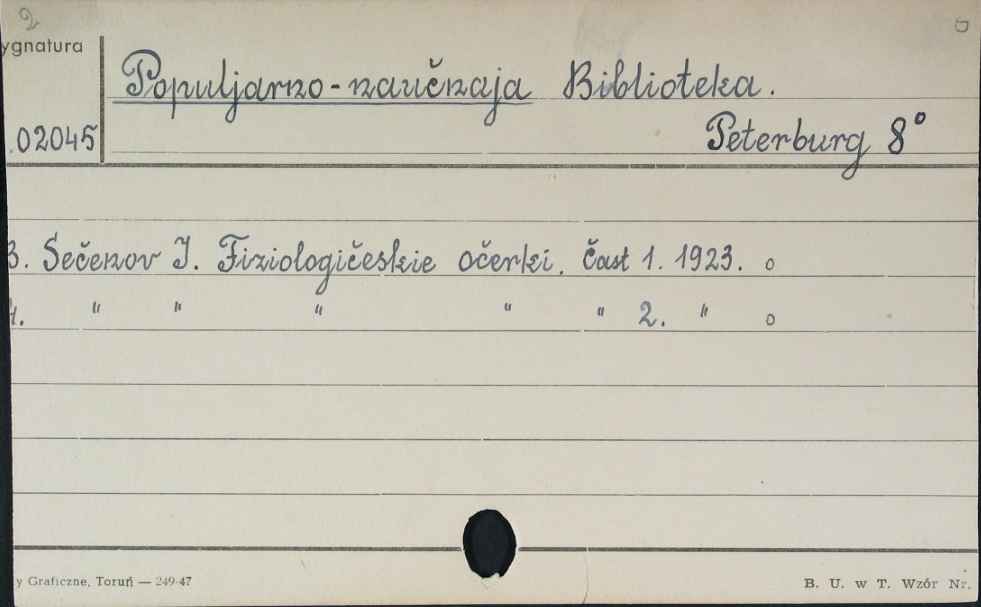 2
ygnatura
Populjarno-naučnaja Biblioteka.
02045
Peterburg 8°
3. Sečenov J. Fiziologičeskie očerki. Čast 1. 1923. o
4. " " " " " 2. " o
y Graficzne, Toruń — 249-47
B. U. w T. Wzór Nr.